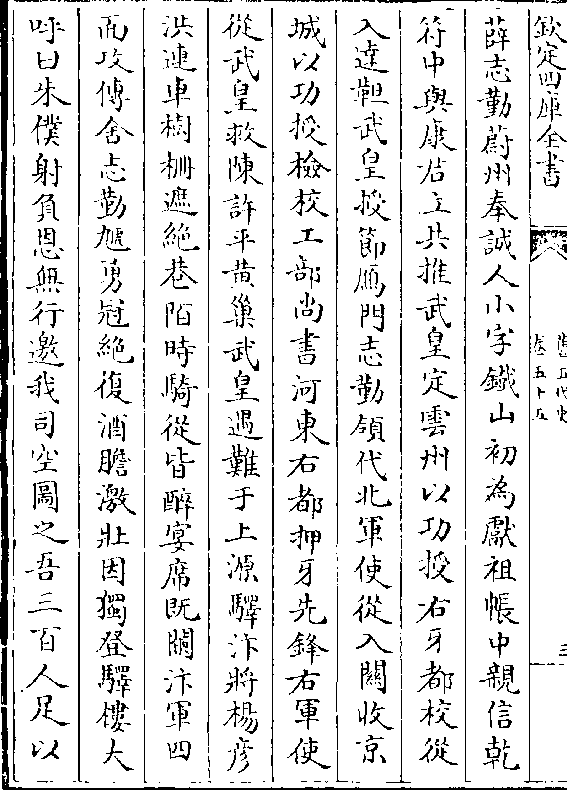 欽定四庫全書
舊五代史
卷五十五
三
薛志勤蔚州奉誠人小字鐵山初為獻祖帳中親信乾
符中與康君立共推武皇定雲州以功授右牙都校從
入達靼武皇授節鴈門志勤領代北軍使從入關收京
城以功授檢校工部尚書河東右都押牙先鋒右軍使
從武皇救陳許平黄巢武皇遇難于上源驛汴將楊彦
洪連車樹栅遮絶巷陌時騎從皆醉宴席既闌汴軍四
面攻傳舍志勤虓勇冠絶復酒膽激壯因獨登驛樓大
呼曰朱僕射負恩無行邀我司空圖之吾三百人足以